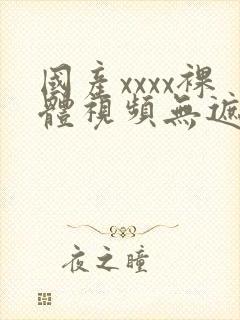 國產xxxx裸
體視頻無遮
夜之瞳